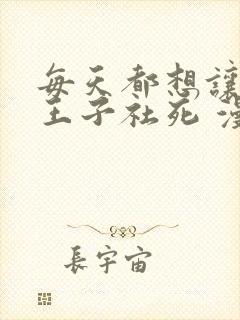 每天都想讓
王子社死 漫
長宇宙